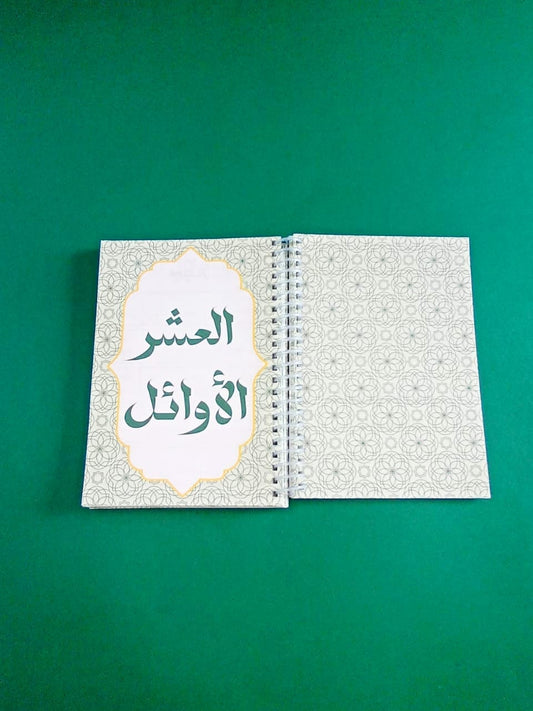 العشر
الأوائل